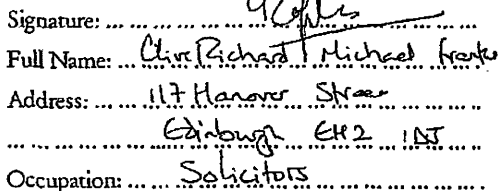 Signature: ... ...
Full Name: ... Clive Richard Michael Franks
Address: ... ... 117 Hanover Street
Edinburgh EH2 1DJ
Occupation: ... ... Solicitors